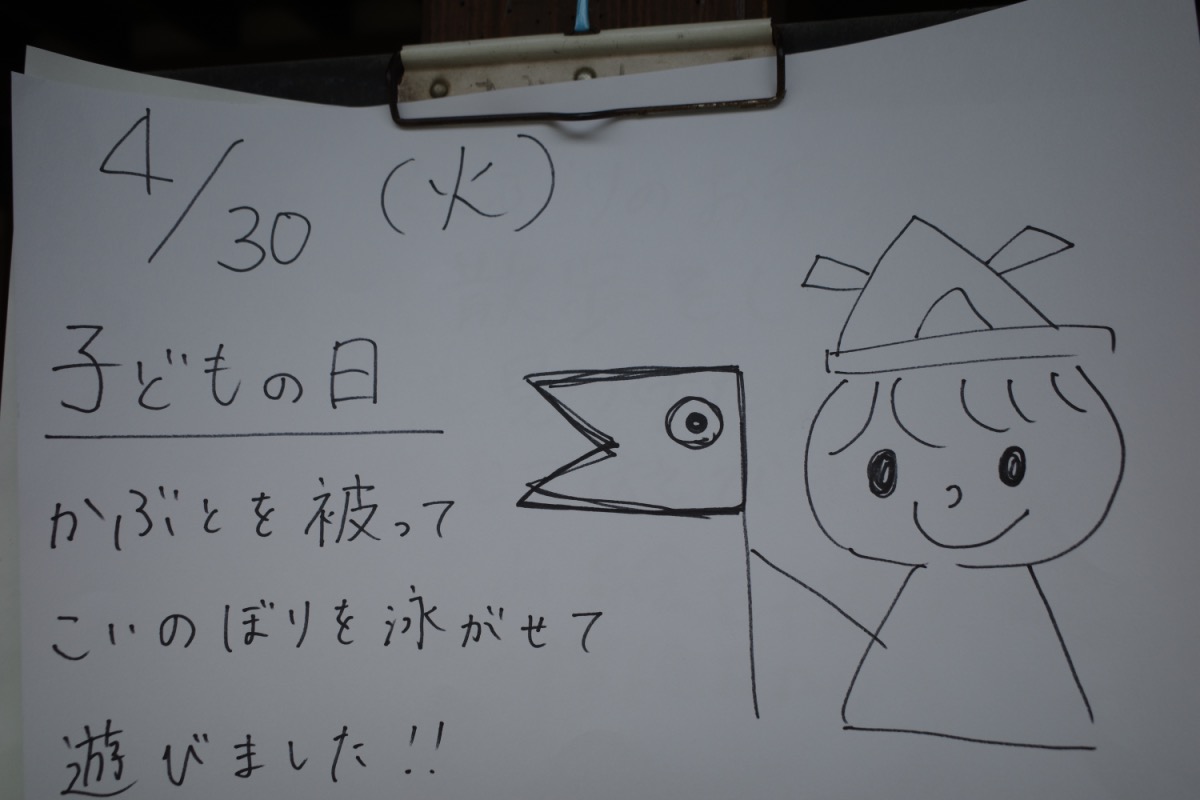 4/30 (火)
子どもの日
かぶとを被って
こいのぼりを泳がせて
遊びました!!